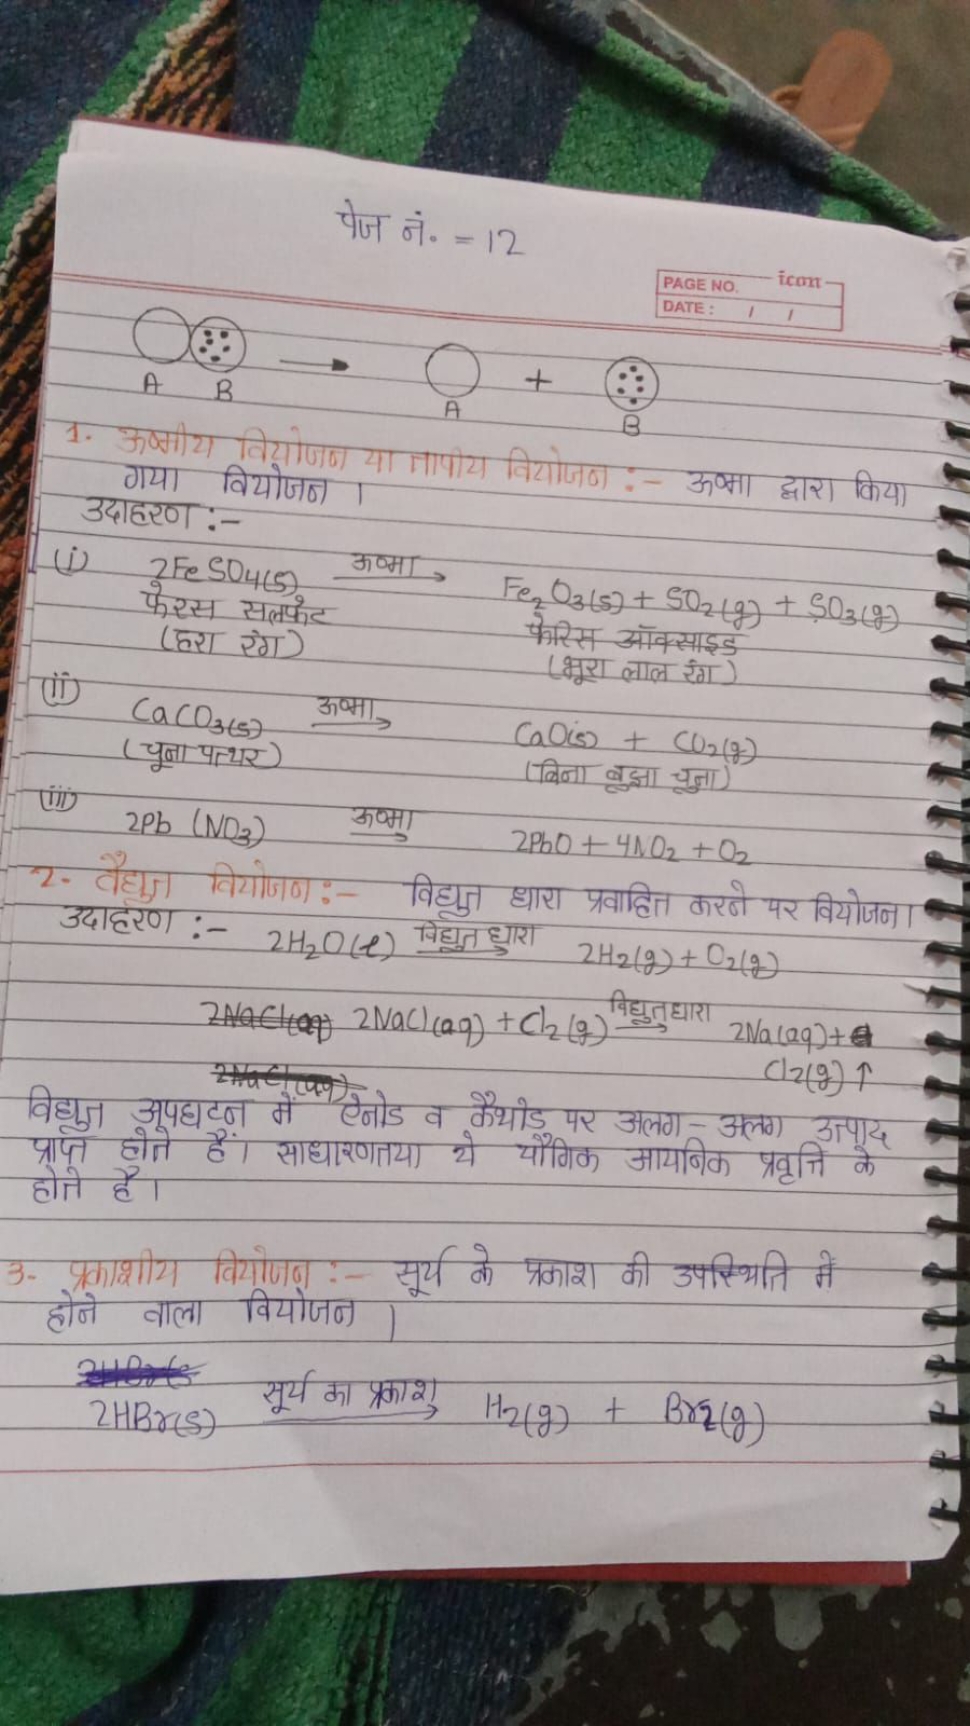 पेज नं. = 12
icon
PAGE NO.
DATE : / /
A B → A + B
1. ऊष्मीय वियोजन या तापीय वियोजन :- ऊष्मा द्वारा किया
गया वियोजन ।
उदाहरण :-
(i) 2FeSO4(s) ऊष्मा→ Fe2O3(s) + SO2(g) + SO3(g)
फेरस सलफेट फेरिस ऑक्साइड
(हरा रंग) (भूरा लाल रंग)
(ii) CaCO3(s) ऊष्मा→ CaO(s) + CO2(g)
(चूना पत्थर) (बिना बूझा चूना)
(iii) 2Pb (NO3) ऊष्मा→ 2PbO + 4NO2 + O2
2- वैद्युत वियोजन :- विद्युत धारा प्रवाहित करने पर वियोजन।
उदाहरण :- 2H2O(l) विद्युत धारा→ 2H2(g) + O2(g)
2NaCl(aq) 2NaCl(aq) + Cl2(g) विद्युत धारा→ 2Na(aq) +
2NaCl(aq) Cl2(g)↑
विद्युत अपघटन में ऐनोड व कैथोड पर अलग - अलग उत्पाद
प्राप्त होते हैं। साधारणतया ये यौगिक आयनिक प्रवृत्ति के
होते है।
3- प्रकाशीय वियोजन :- सूर्य के प्रकाश की उपस्थिति में
होने वाला वियोजन |
2HBr(s
2HBr(s) सूर्य का प्रकाश→ H2(g) + Br2(g)